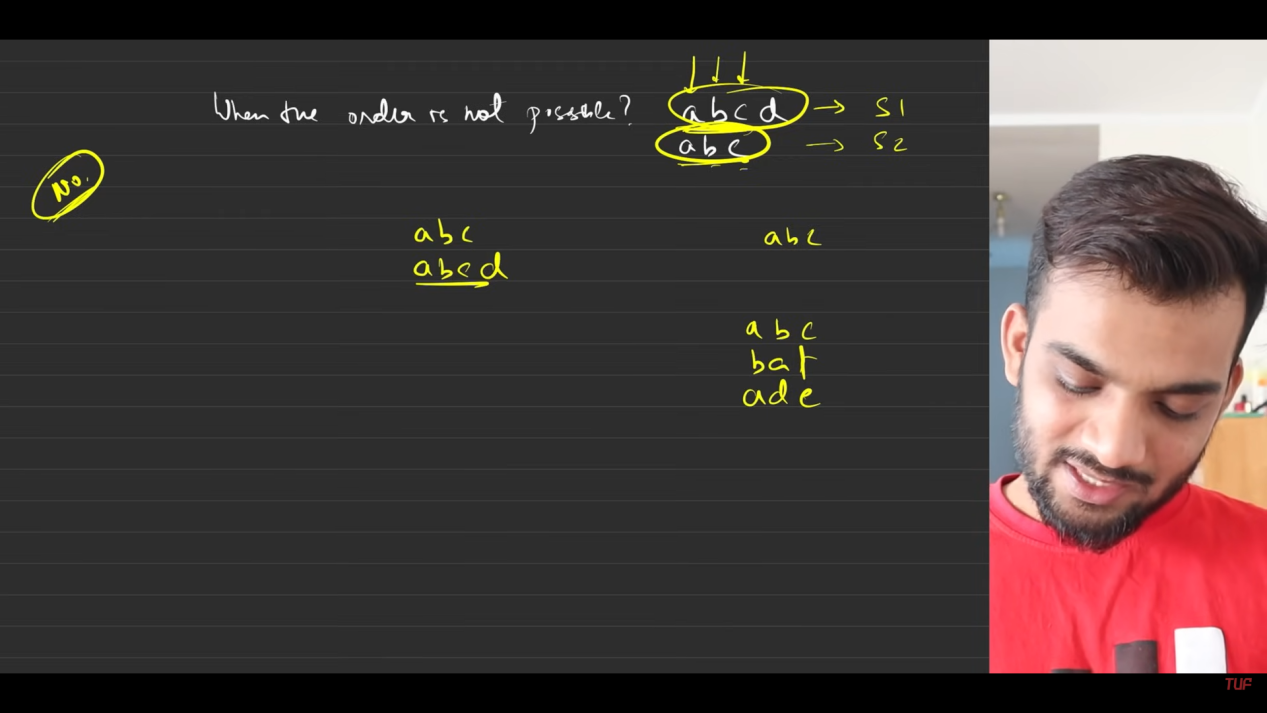 When the order is not possible?
abcd → S1
abc → S2
No.
abc
abcd
abc
abc
bat
ade
TUF